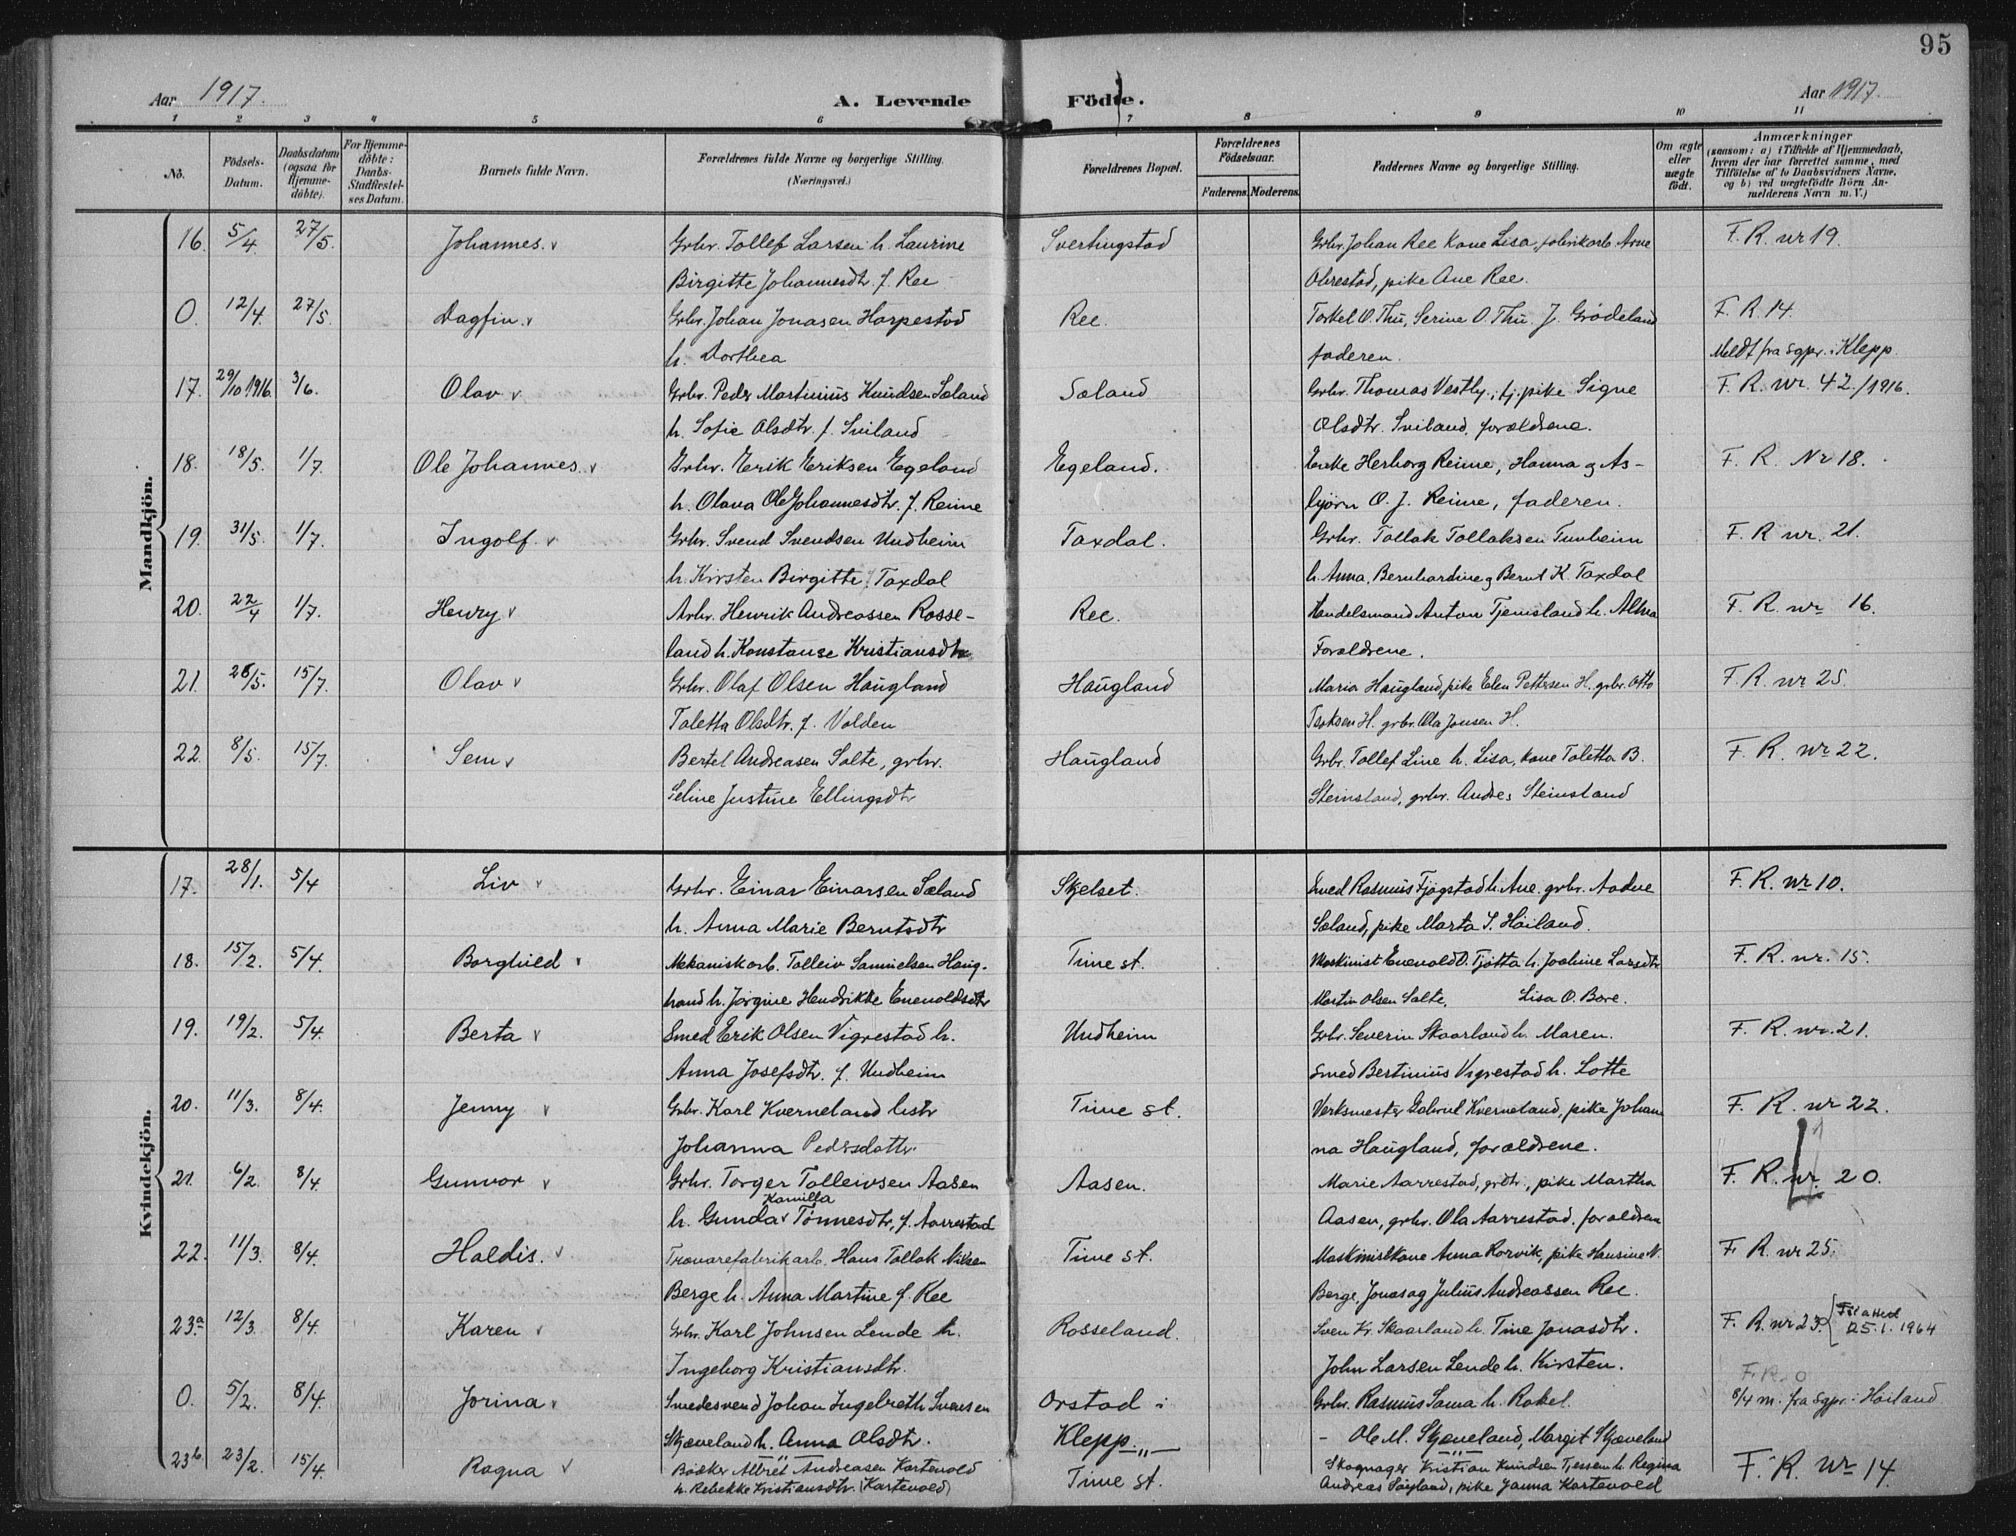 95
Aar 1917. A. Levende Födte. Aar 1917.
1 2 3 4 5 6 7 8 9 10 11
No. Födsels-Datum. Daabsdatum (ogsaa for Hjemme-döbte). For Hjemme-döbte: Daabs-Stadfæstel-ses Datum. Barnets fulde Navn. Forældrenes fulde Navne og borgerlige Stilling. (Næringsvei.) Forældrenes Bopæl. Forældrenes Födselsaar. Faderens. Moderens. Faddernes Navne og borgerlige Stilling. Om ægte eller uægte födt. Anmærkninger (saasom: a) i Tilfælde af Hjemmedaab, hvem der har forrettet samme, med Tilföielse af to Daabsvidners Navne, og b) ved uægtefödte Börn An-melderens Navn m. V.)
Mandkjön.
16. 5/4. 27/5. Johannes. v Grbr. Tollef Larsen h. Laurine Svertingstad Grbr. Johan Ree kone Lisa, fabrikarb. Arne F. R. nr 19.
Birgitte Johannesdtr. f. Ree Obrestad, pike Ane Ree.
0. 12/4. 27/5. Dagfin. v Grbr. Johan Jonasen Harpestad Ree. Torkel O. Thu, Serine O. Thu. J. Grødeland F. R. 14
h. Dorthea faderen. Meldt fra sgpr. i Klepp.
17. 29/10 1916. 3/6. Olav v Grbr. Peder Martinius Knudsen Sæland Sæland Grbr. Thomas Vestly, tj. pike Signe F. R. nr. 42/1916.
h. Sofie Olsdtr. f. Sviland Olsdtr. Sviland, forældrene.
18. 18/5. 1/7. Ole Johannes. v Grbr. Erik Eriksen Egeland Egeland. Enke Herborg Reime, Hanna og As- F. R. Nr 18.
h. Olava Ole Johannesdtr. f. Reime bjørn O. J. Reime, faderen.
19. 31/5. 1/7. Ingolf. v Grbr. Svend Svendsen Undheim Taxdal. Grbr. Tollak Tollaksen Tunheim F. R nr. 21.
h. Kirsten Birgitte Taxdal h. Anna, Bernhardine og Bernt K. Taxdal
20. 22/4 1/7. Henry v Arbr. Henrik Andreassen Rosse- Ree. Handelsmand Anton Tjemsland h. Alma F. R. nr 16.
land h. Konstanse Kristiansdtr Forældrene.
21. 26/5. 15/7. Olav v Grbr. Olaf Olsen Haugland Haugland Maria Haugland, pike Elen Pettersen H. grbr. Otto F. R. nr 25.
Taletta Olsdtr. f. Volden Torksen H. grbr. Ola Jonsen H.
22. 8/5. 15/7. Sem v Bertel Andreasen Salte, grbr. Haugland Grbr. Tollef Line h. Lisa, kone Taletta B. F. R. nr 22.
Seline Justine Ellingsdtr Steinsland, grbr. Andreas Steinsland
Kvindekjön.
17. 28/1. 5/4 Liv v Grbr. Einar Einarsen Sæland Skjelset. Smed Rasmus Fjøgstad h. Ane. grbr. Aadne F. R. nr 10.
h. Anna Marie Berntsdtr Sæland, pike Marta S. Høiland.
18. 15/2. 5/4. Borghild v Mekaniskarb. Tolleiv Samuelsen Haug- Time st. Maskinist Enevold O. Tjøtta h. Joakine Larsdtr F. R. nr. 15.
land h. Jørgine Hendrikke Enevoldsdtr Martin Olsen Salte, Lisa O. Bore.
19. 19/2. 5/4. Berta v Smed Erik Olsen Vigrestad h. Undheim Grbr. Severin Skaarland h. Maren. F. R. nr. 21.
Anna Josefsdtr. f. Undheim Smed Bertinius Vigrestad h. Lotte
20. 11/3. 8/4. Jenny v Grbr. Karl Kverneland hstr Time st. Verksmester Gabriel Kverneland, pike Johan F. R. nr 22.
Johanna Pedersdattr. na Haugland, forældrene.
21. 6/2. 8/4. Gunvor v Grbr. Torger Tolleivsen Aasen Aasen. Marie Aarrestad, grdtr., pike Martha F. R. nr. 20.
Kamilla
h. Gunda v Tønnesdtr, f. Aarrestad Aasen, grbr. Ola Aarrestad. forældrene
22. 11/3. 8/4. Haldis. v Trævarefabrikarb. Hans Tollak Nilsen Time st. Maskinistkone Anna Rorvik, pike Hansine N. F. R. nr 25.
Berge h. Anna Martine f. Ree Berge, Jonas og Julius Andreassen Ree.
23.a 12/3. 8/4. Karen v Grbr. Karl Johnsen Lende h. Rosseland. Sven Kr. Skaarland h. Tine Jonasdtr. F. R. nr 23. { Fø. attest 25.1.1964
Ingeborg Kristiansdtr. John Larsen Lende h. Kirsten.
F. R. 0
0. 5/2. 8/4. Jorina v Smedesvend Johan Ingebreth Svensen Orstad i Grbr. Rasmus Sama h. Rakel. 8/4 m. fra sgpr. i Høiland
Skjæveland h. Anna Olsdtr. Klepp. - Ole M. Skjæveland, Margit Skjæveland
23b. 23/2. 15/4. Ragna v Bødker Albret Andreasen Kartevold Time st. Skognager Kristian Knudsen Tjessem h. Regina F. R. Nr 14.
h. Rebekke Kristiansdtr. (Kartevold) Andreas Søyland, pike Janna Kartevold